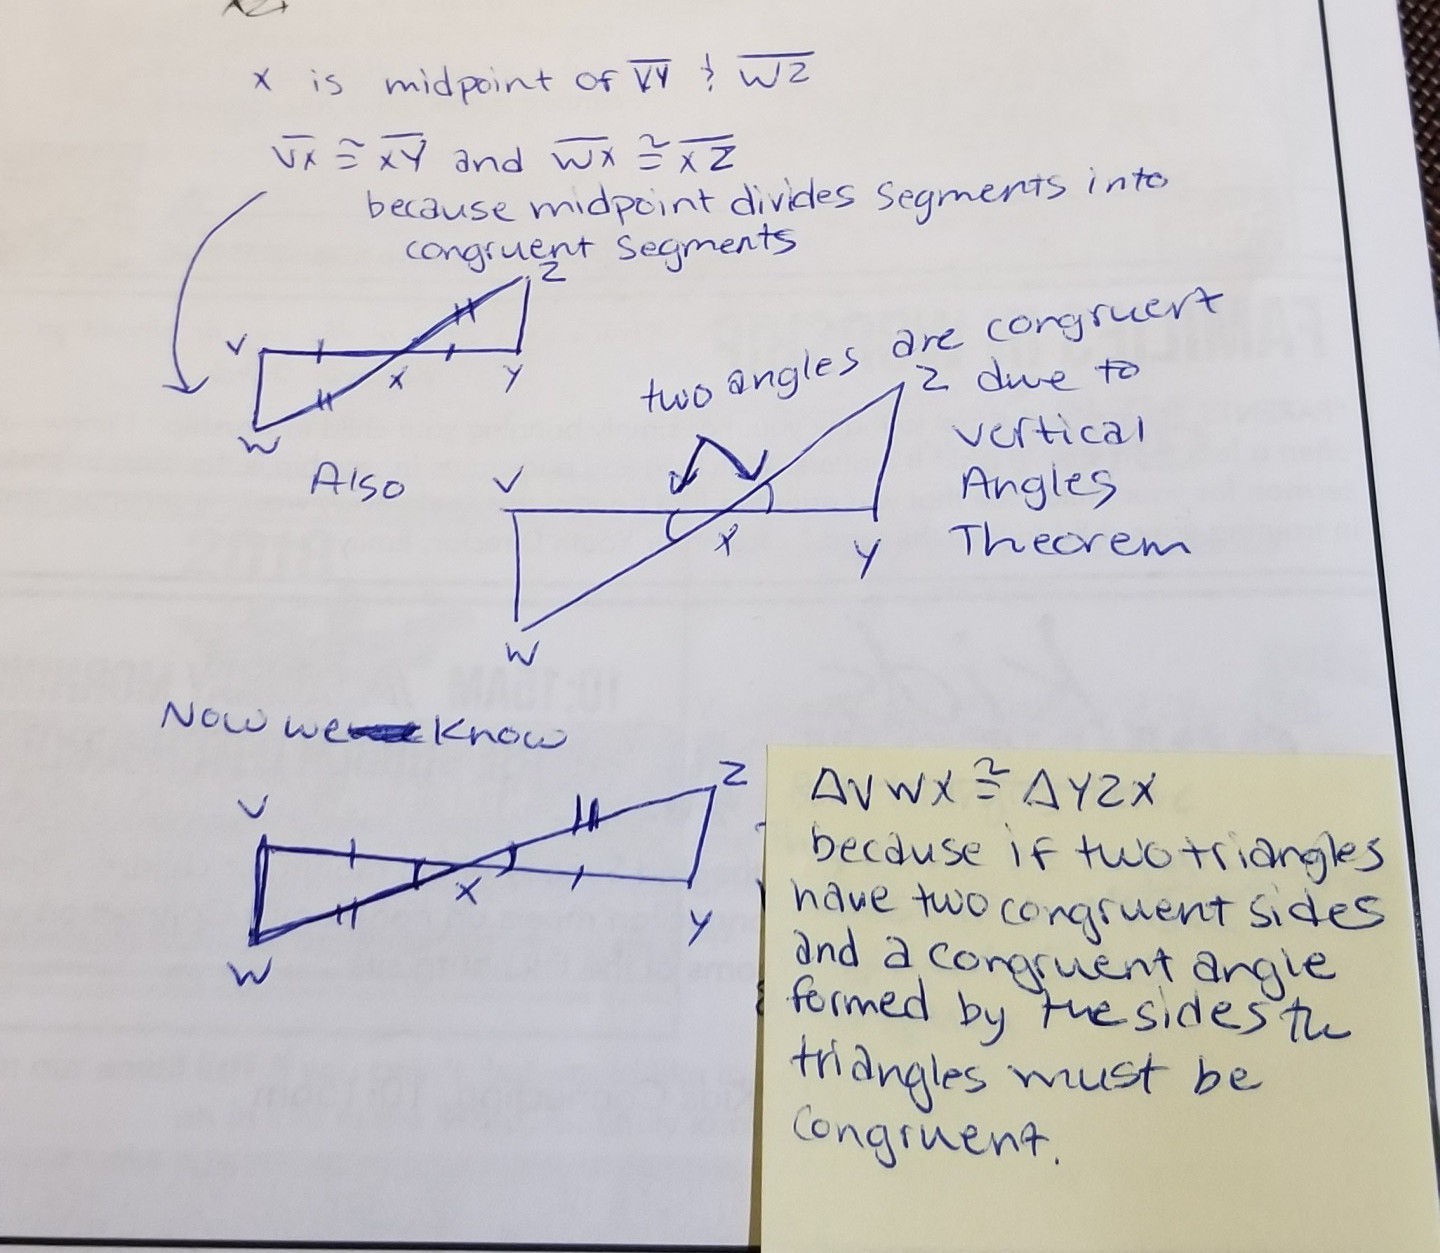 X is midpoint of VY & WZ
VX ≅ XY and WX ≅ XZ
because midpoint divides segments into
congruent segments
Z
V
X
Y
W
two angles are congruent
Z due to
vertical
Angles
Theorem
Also
V
X
Y
W
Now we know
V
Z
X
Y
W
ΔVWX ≅ ΔYZX
because if two triangles
have two congruent sides
and a congruent angle
formed by the sides the
triangles must be
congruent.